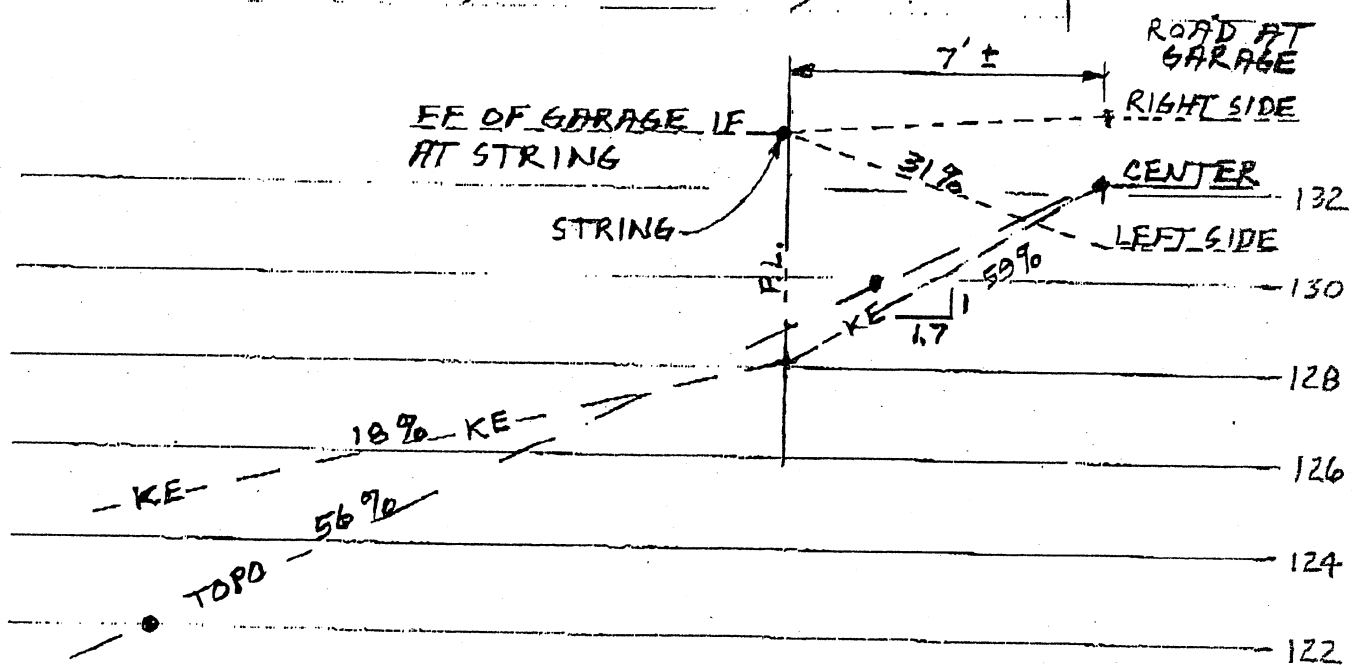 ROAD AT
GARAGE
7' ±
RIGHT SIDE
EF OF GARAGE IF
AT STRING
31%
CENTER
132
STRING
LEFT SIDE
P.L.
59%
130
KE
1
1.7
128
18%
KE
126
KE
56%
124
TOPO
122